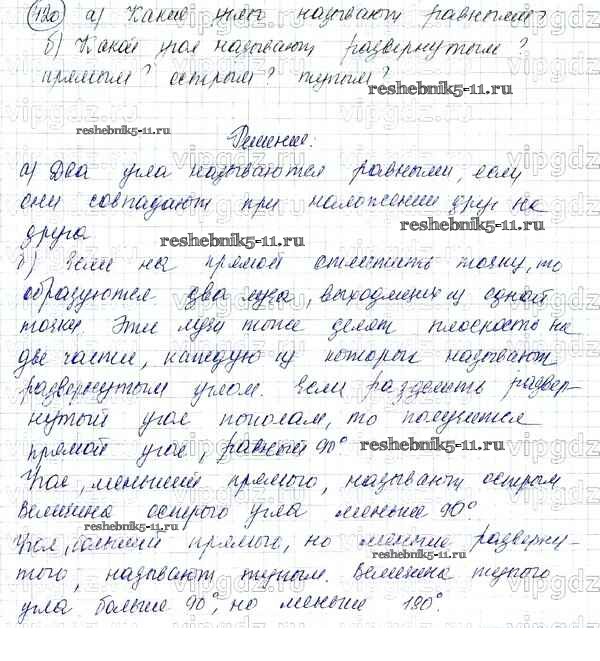 120 а) Какие углы называют равными?
б) Какой угол называют развернутым?
прямым? острым? тупым?
reshebnik5-11.ru
reshebnik5-11.ru
Решение:
а) Два угла называются равными, если
они совпадают при наложении друг на
друга
reshebnik5-11.ru
б) Если на прямой отметить точку, то
образуются два луча, выходящих из одной
точки. Эти лучи тоже делят плоскость на
две части, каждую из которых называют
развернутым углом. Если разделить развер-
нутый угол пополам, то получится
прямой угол, равный 90°
reshebnik5-11.ru
Угол, меньший прямого, называют острым
Величина острого угла меньше 90°.
reshebnik5-11.ru
Угол, больший прямого, но меньше разверну-
reshebnik5-11.ru
того, называют тупым. Величина тупого
угла больше 90°, но меньше 180°.
vipgdz.ru